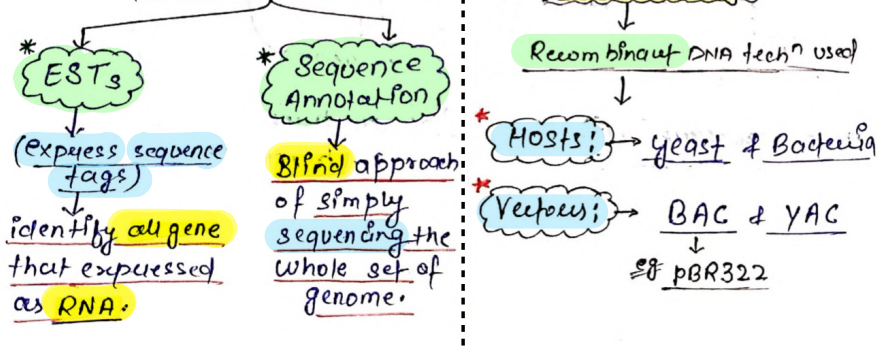 * ESTs
(express sequence
tags)
identify all gene
that expressed
as RNA.
* Sequence
Annotation
Blind approach
of simply
sequencing the
whole set of
genome.
Recombinant DNA techⁿ used
* Hosts: → yeast & Bacteria
* Vectors: → BAC & YAC
eg pBR322